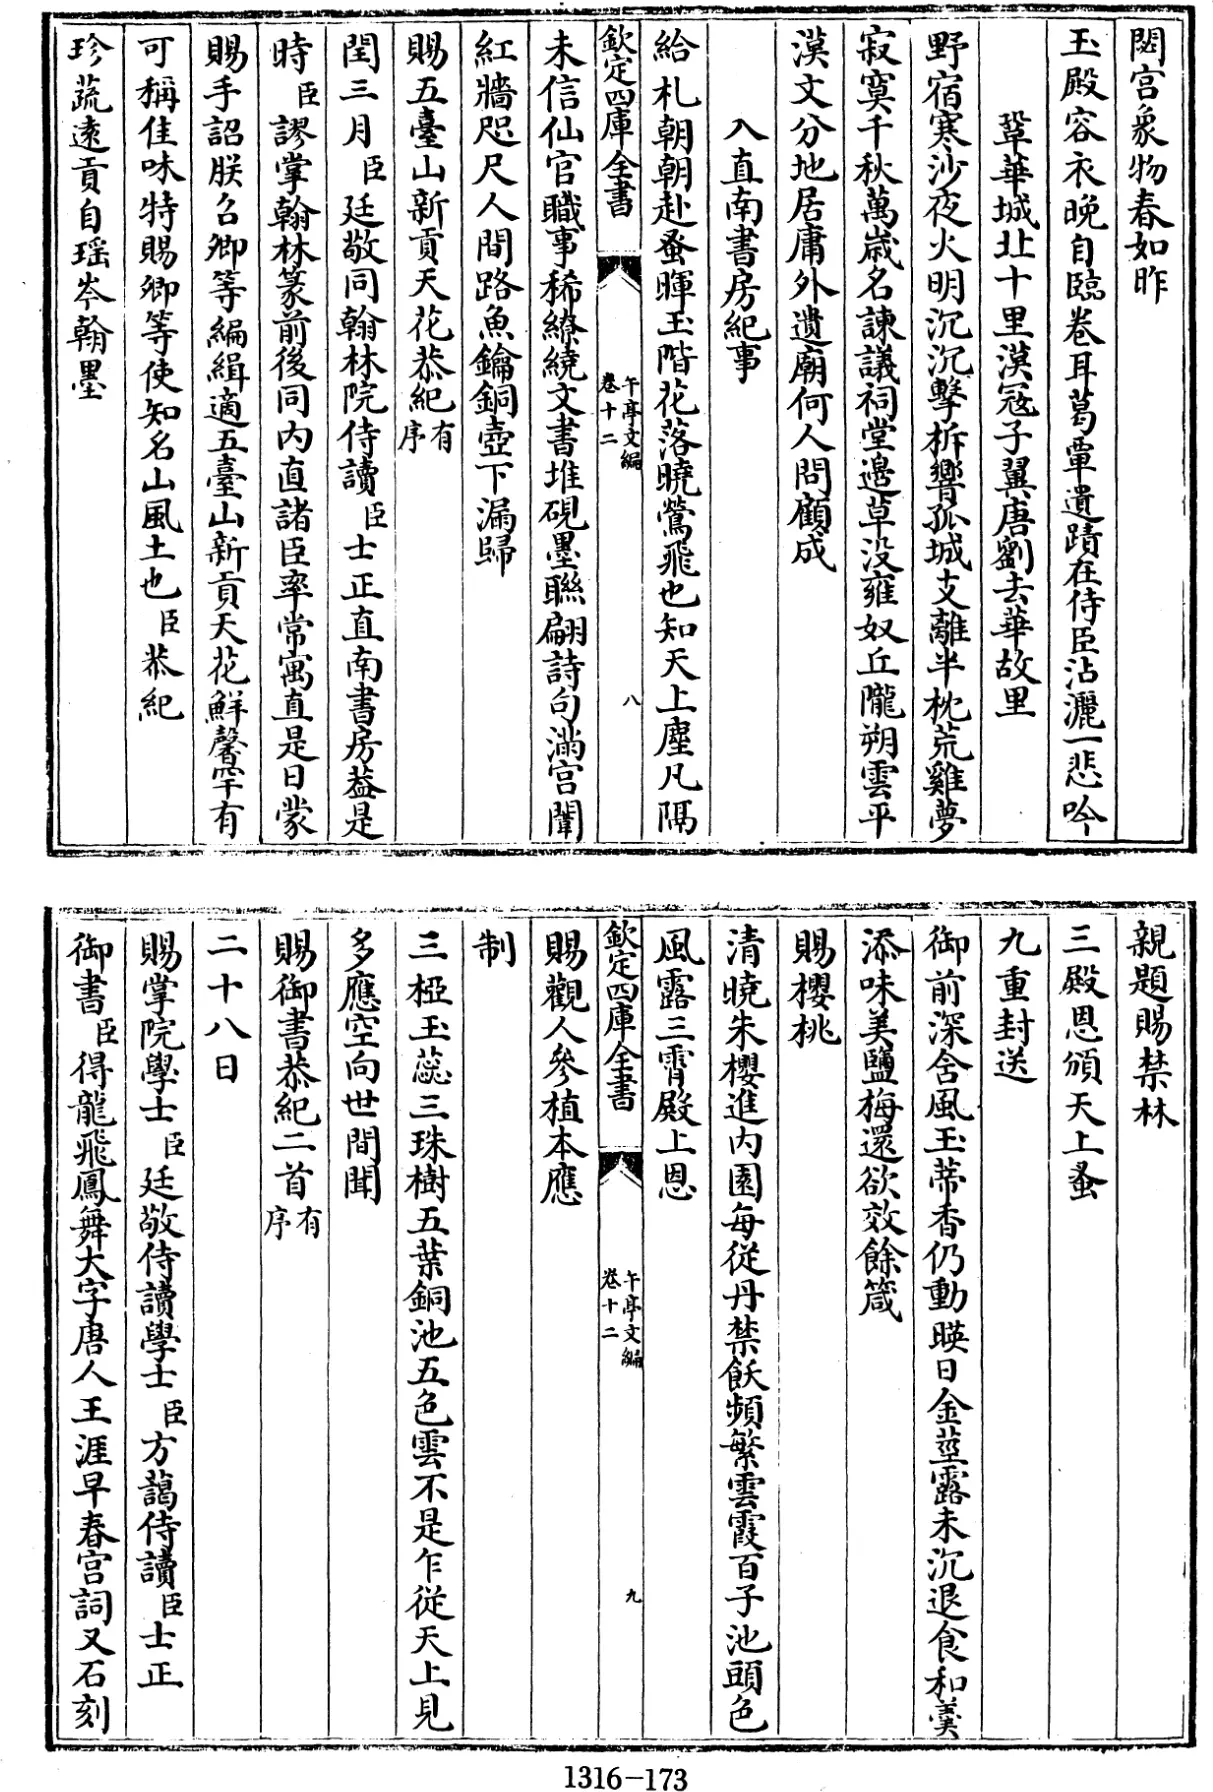 閟宫象物春如昨
玉殿容衣晚自臨卷耳葛覃遺蹟在侍臣沾灑一悲吟
鞏華城北十里漠冦子翼唐劉去華故里
野宿寒沙夜火明沉沉擊柝響孤城支離半枕荒雞夢
寂寞千秋萬歲名諫議祠堂邉草没雍奴丘隴朔雲平
漠文分地居庸外遺廟何人問顧成
入直南書房紀事
給札朝朝赴蚤暉玉階花落曉鶯飛也知天上塵凡隔
欽定四庫全書
午亭文編
卷十二
八
未信仙官職事稀繚繞文書堆硯墨聯翩詩句滿宫闈
紅牆咫尺人間路魚鑰銅壺下漏歸
賜五臺山新貢天花恭紀有序
閏三月臣廷敬同翰林院侍讀臣士正直南書房葢是
時臣謬掌翰林篆前後同内直諸臣率常寓直是日蒙
賜手詔朕召卿等編緝適五臺山新貢天花鮮馨罕有
可稱佳味特賜卿等使知名山風土也臣恭紀
珍蔬逺貢自瑶岑翰墨
親題賜禁林
三殿恩頒天上蚤
九重封送
御前深含風玉蒂香仍動暎日金莖露未沉退食和羮
添味美鹽梅還欲效餘箴
賜櫻桃
清曉朱櫻進内園每從丹禁飫頻繁雲霞百子池頭色
風露三霄殿上恩
欽定四庫全書
午亭文編
卷十二
九
賜觀人參植本應
制
三椏玉蕊三珠樹五葉銅池五色雲不是乍從天上見
多應空向世間聞
賜御書恭紀二首有序
二十八日
賜掌院學士臣廷敬侍讀學士臣方藹侍讀臣士正
御書臣得龍飛鳳舞大字唐人王涯早春宫詞又石刻
1316-173